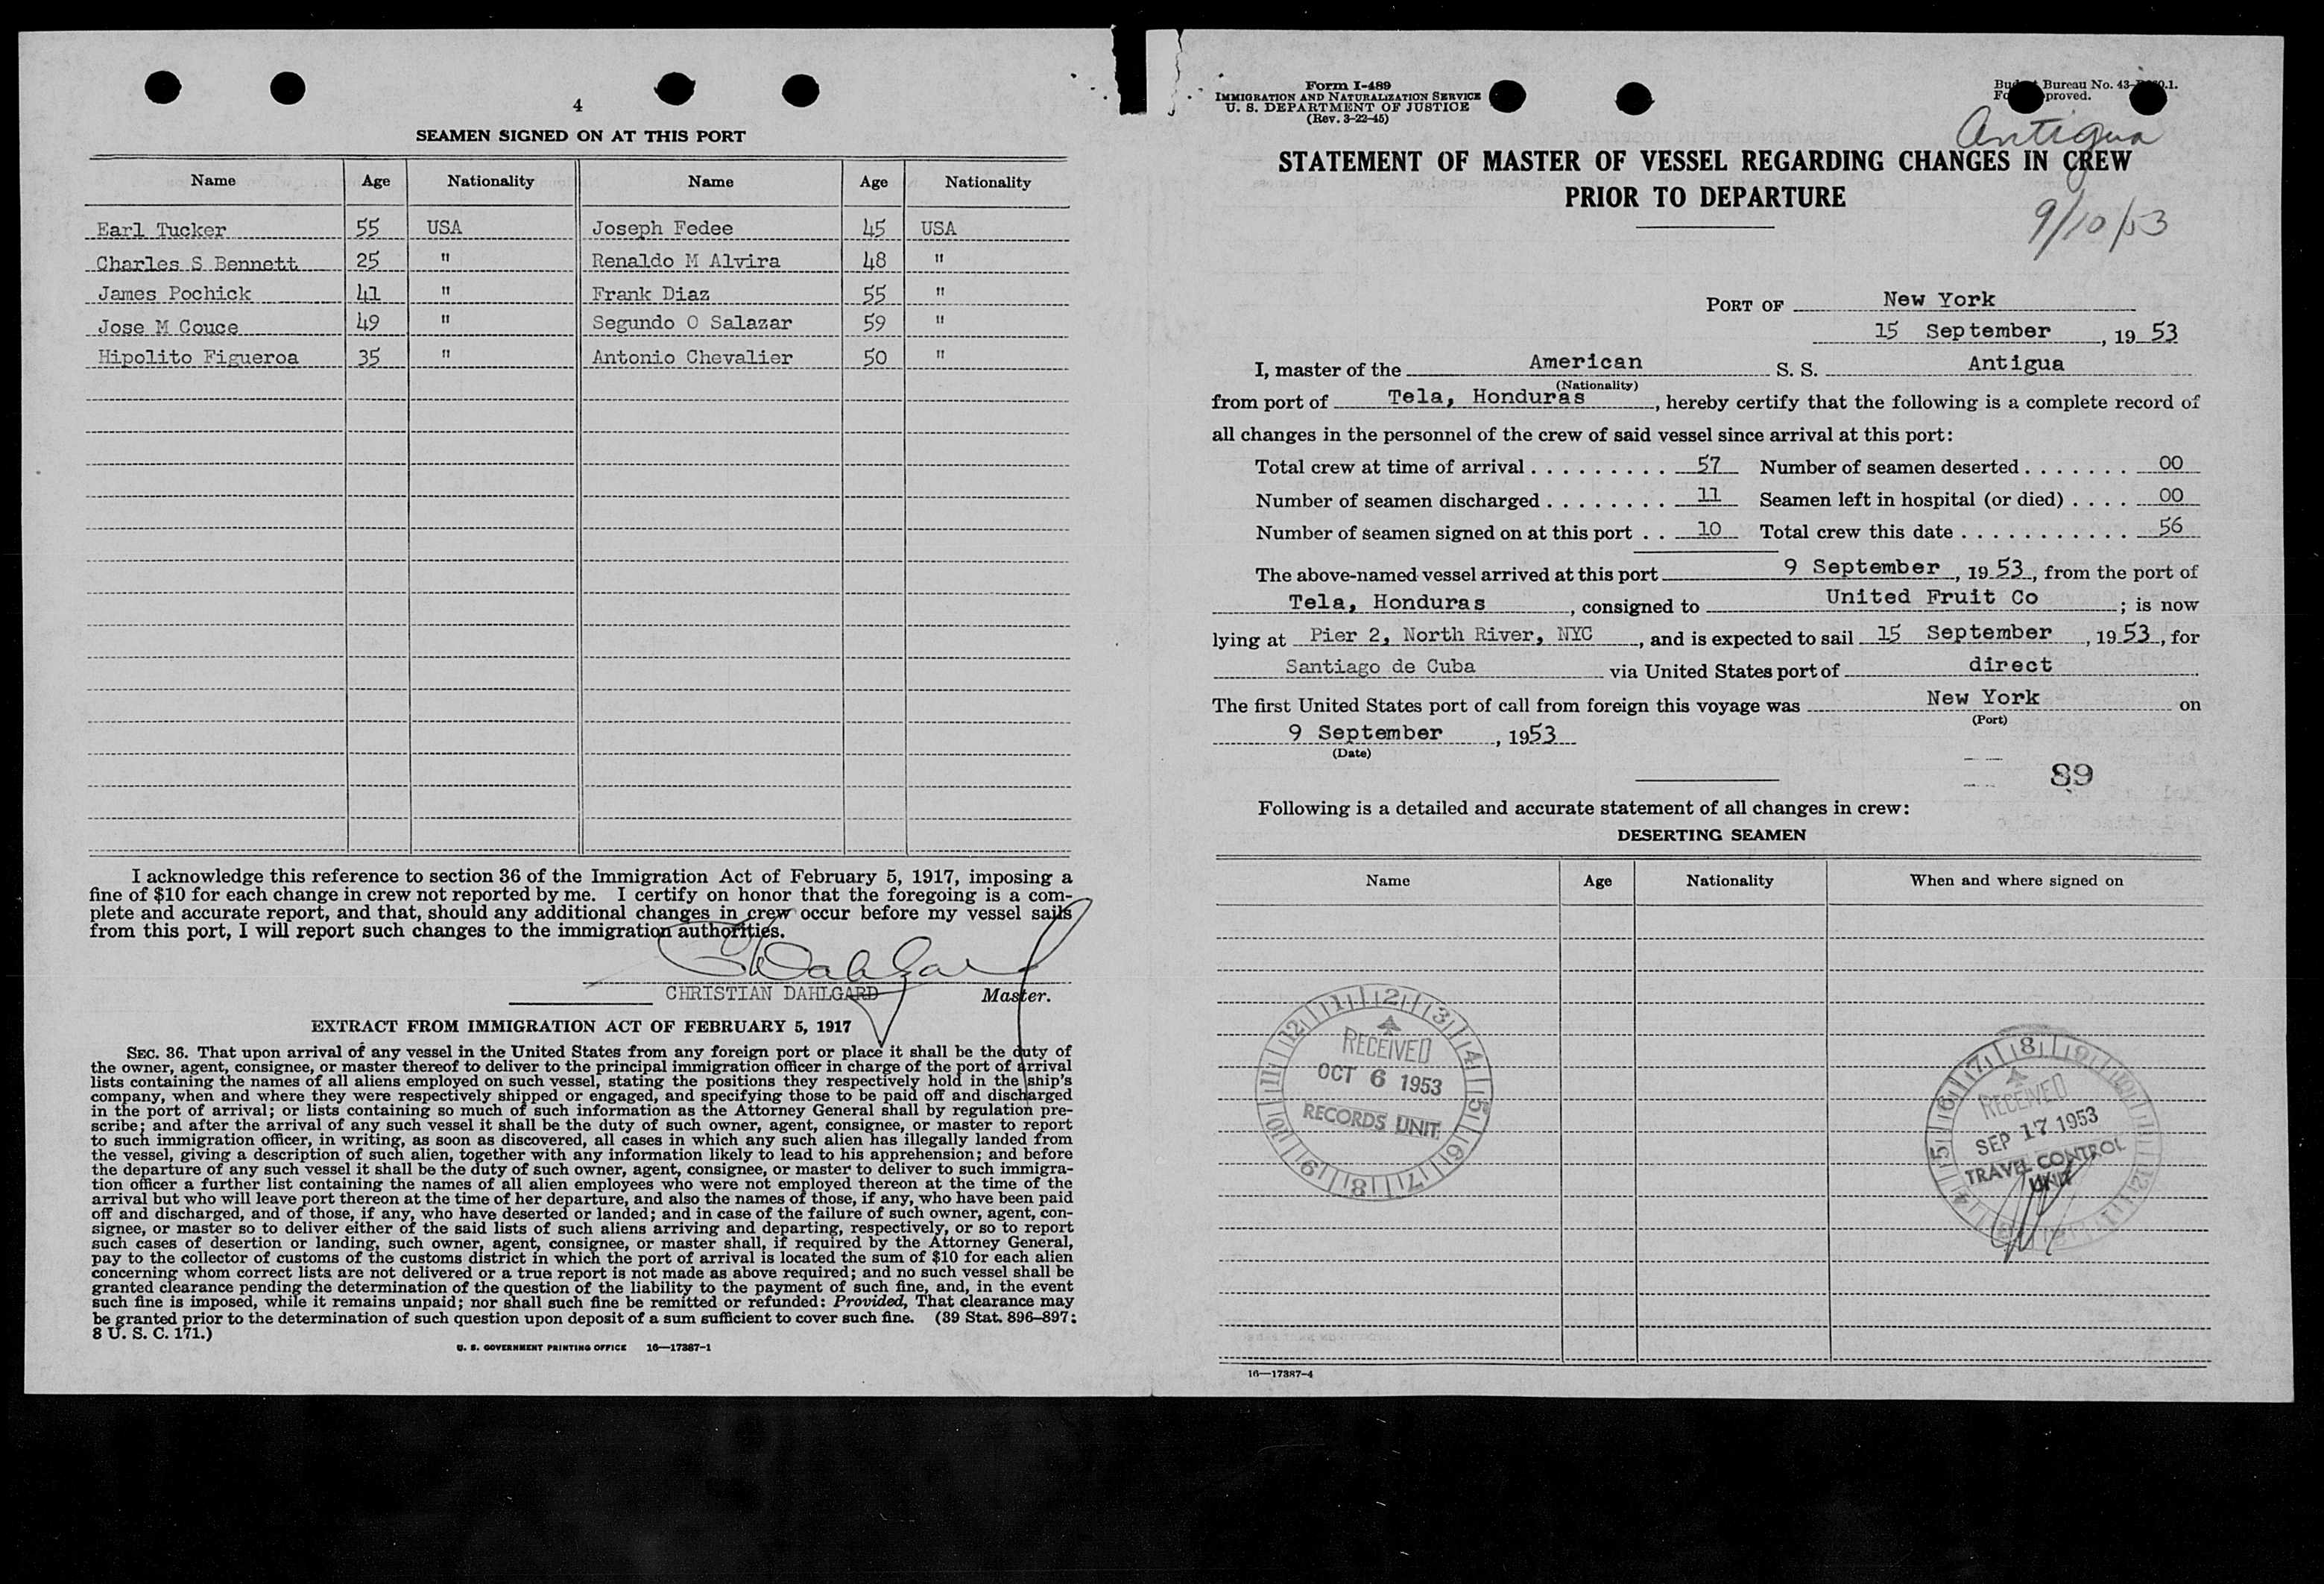 4
SEAMEN SIGNED ON AT THIS PORT
Name Age Nationality Name Age Nationality
Earl Tucker 55 USA Joseph Fedee 45 USA
Charles S Bennett 25 " Renaldo M Alvira 48 "
James Pochick 41 " Frank Diaz 55 "
Jose M Couce 49 " Segundo O Salazar 59 "
Hipolito Figueroa 35 " Antonio Chevalier 50 "
I acknowledge this reference to section 36 of the Immigration Act of February 5, 1917, imposing a
fine of $10 for each change in crew not reported by me. I certify on honor that the foregoing is a com-
plete and accurate report, and that, should any additional changes in crew occur before my vessel sails
from this port, I will report such changes to the immigration authorities.
CHRISTIAN DAHLGARD Master.
EXTRACT FROM IMMIGRATION ACT OF FEBRUARY 5, 1917
SEC. 36. That upon arrival of any vessel in the United States from any foreign port or place it shall be the duty of
the owner, agent, consignee, or master thereof to deliver to the principal immigration officer in charge of the port of arrival
lists containing the names of all aliens employed on such vessel, stating the positions they respectively hold in the ship's
company, when and where they were respectively shipped or engaged, and specifying those to be paid off and discharged
in the port of arrival; or lists containing so much of such information as the Attorney General shall by regulation pre-
scribe; and after the arrival of any such vessel it shall be the duty of such owner, agent, consignee, or master to report
to such immigration officer, in writing, as soon as discovered, all cases in which any such alien has illegally landed from
the vessel, giving a description of such alien, together with any information likely to lead to his apprehension; and before
the departure of any such vessel it shall be the duty of such owner, agent, consignee, or master to deliver to such immigra-
tion officer a further list containing the names of all alien employees who were not employed thereon at the time of the
arrival but who will leave port thereon at the time of her departure, and also the names of those, if any, who have been paid
off and discharged, and of those, if any, who have deserted or landed; and in case of the failure of such owner, agent, con-
signee, or master so to deliver either of the said lists of such aliens arriving and departing, respectively, or so to report
such cases of desertion or landing, such owner, agent, consignee, or master shall, if required by the Attorney General,
pay to the collector of customs of the customs district in which the port of arrival is located the sum of $10 for each alien
concerning whom correct lists are not delivered or a true report is not made as above required; and no such vessel shall be
granted clearance pending the determination of the question of the liability to the payment of such fine, and, in the event
such fine is imposed, while it remains unpaid; nor shall such fine be remitted or refunded: Provided, That clearance may
be granted prior to the determination of such question upon deposit of a sum sufficient to cover such fine. (39 Stat. 896–897;
8 U. S. C. 171.)
U. S. GOVERNMENT PRINTING OFFICE 16—17387-1
Form I-489
IMMIGRATION AND NATURALIZATION SERVICE
U. S. DEPARTMENT OF JUSTICE
(Rev. 3-22-45)
Bureau No. 43-
Antigua
STATEMENT OF MASTER OF VESSEL REGARDING CHANGES IN CREW
PRIOR TO DEPARTURE
9/10/53
PORT OF New York
15 September, 19 53
I, master of the American S. S. Antigua
(Nationality)
from port of Tela, Honduras, hereby certify that the following is a complete record of
all changes in the personnel of the crew of said vessel since arrival at this port:
Total crew at time of arrival . . . . . . . . . 57 Number of seamen deserted . . . . . . . 00
Number of seamen discharged . . . . . . . . 11 Seamen left in hospital (or died) . . . . 00
Number of seamen signed on at this port . . 10 Total crew this date . . . . . . . . . . . 56
The above-named vessel arrived at this port 9 September, 19 53, from the port of
Tela, Honduras, consigned to United Fruit Co; is now
lying at Pier 2, North River, NYC, and is expected to sail 15 September, 19 53, for
Santiago de Cuba via United States port of direct
The first United States port of call from foreign this voyage was New York on
(Port)
9 September, 1953
(Date)
89
Following is a detailed and accurate statement of all changes in crew:
DESERTING SEAMEN
Name Age Nationality When and where signed on
RECEIVED
OCT 6 1953
RECORDS UNIT
RECEIVED
SEP 17 1953
TRAVEL CONTROL
UNIT
16—17387-4